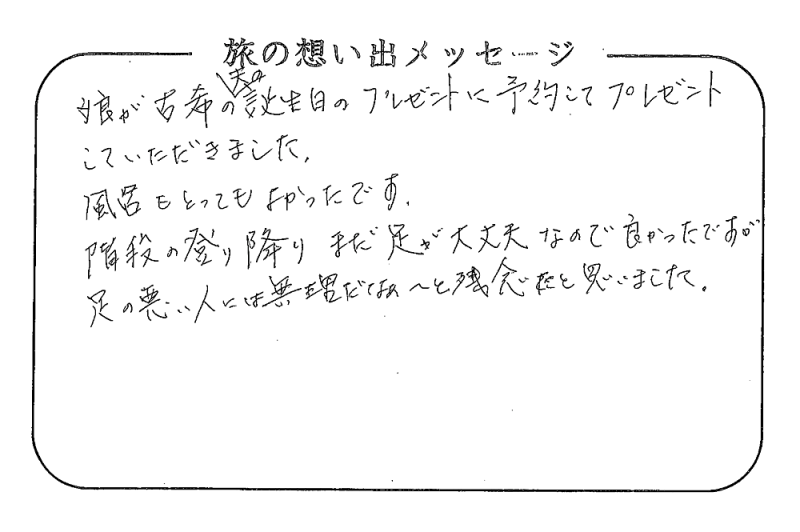 旅の想い出メッセージ
娘が古希の夫の誕生日のプレゼントに予約してプレゼント
していただきました。
風呂もとってもよかったです。
階段の登り降りまだ足が大丈夫なので良かったですが
足の悪い人には無理だなぁ〜と残念だと思いました。